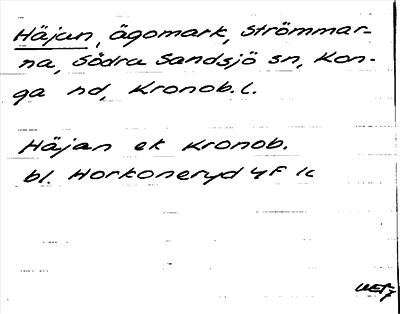 Häjan, ägomark, Strömmar-
na, Södra Sandsjö sn, Kon-
ga hd, Kronob. l.
Häjan ek Kronob.
bl. Horkoneryd 4F 1c